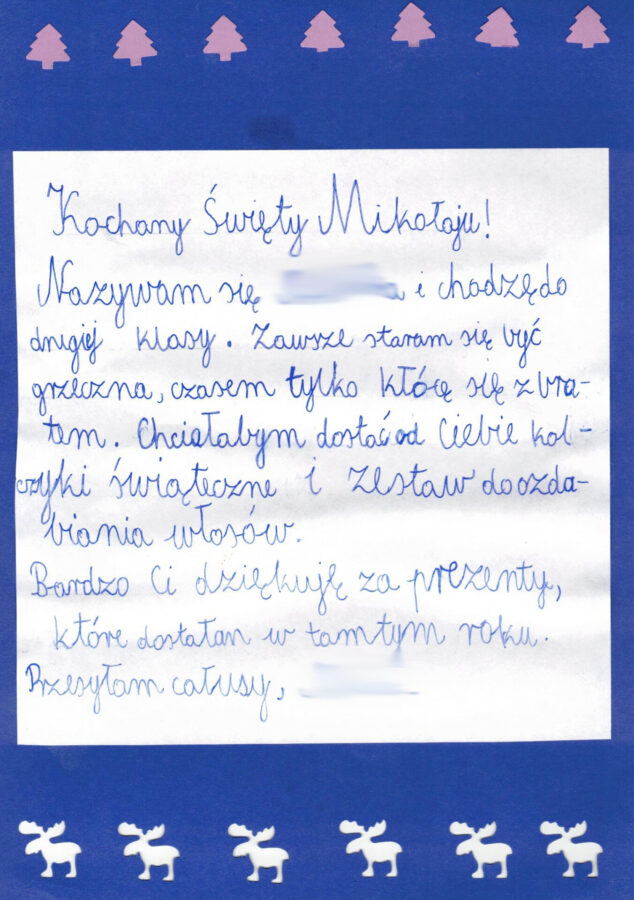 Kochany Święty Mikołaju!
Nazywam się i chodzę do
drugiej klasy. Zawsze staram się być
grzeczna, czasem tylko kłócę się z bra-
tem. Chciałabym dostać od Ciebie kol-
czyki świąteczne i zestaw do ozda-
biania włosów.
Bardzo Ci dziękuję za prezenty,
które dostałan w tamtym roku.
Przesyłam całusy,